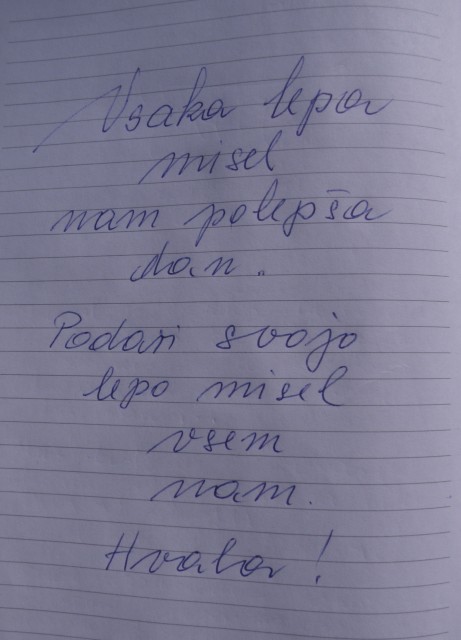 Vsaka lepa
misel
nam polepša
dan.
Podari svojo
lepo misel
vsem
nam.
Hvala!